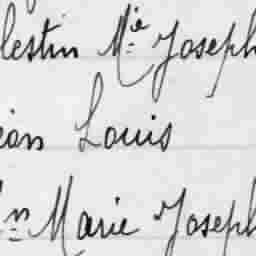 lestin Mie Joseph
ean Louis
n Marie Joseph